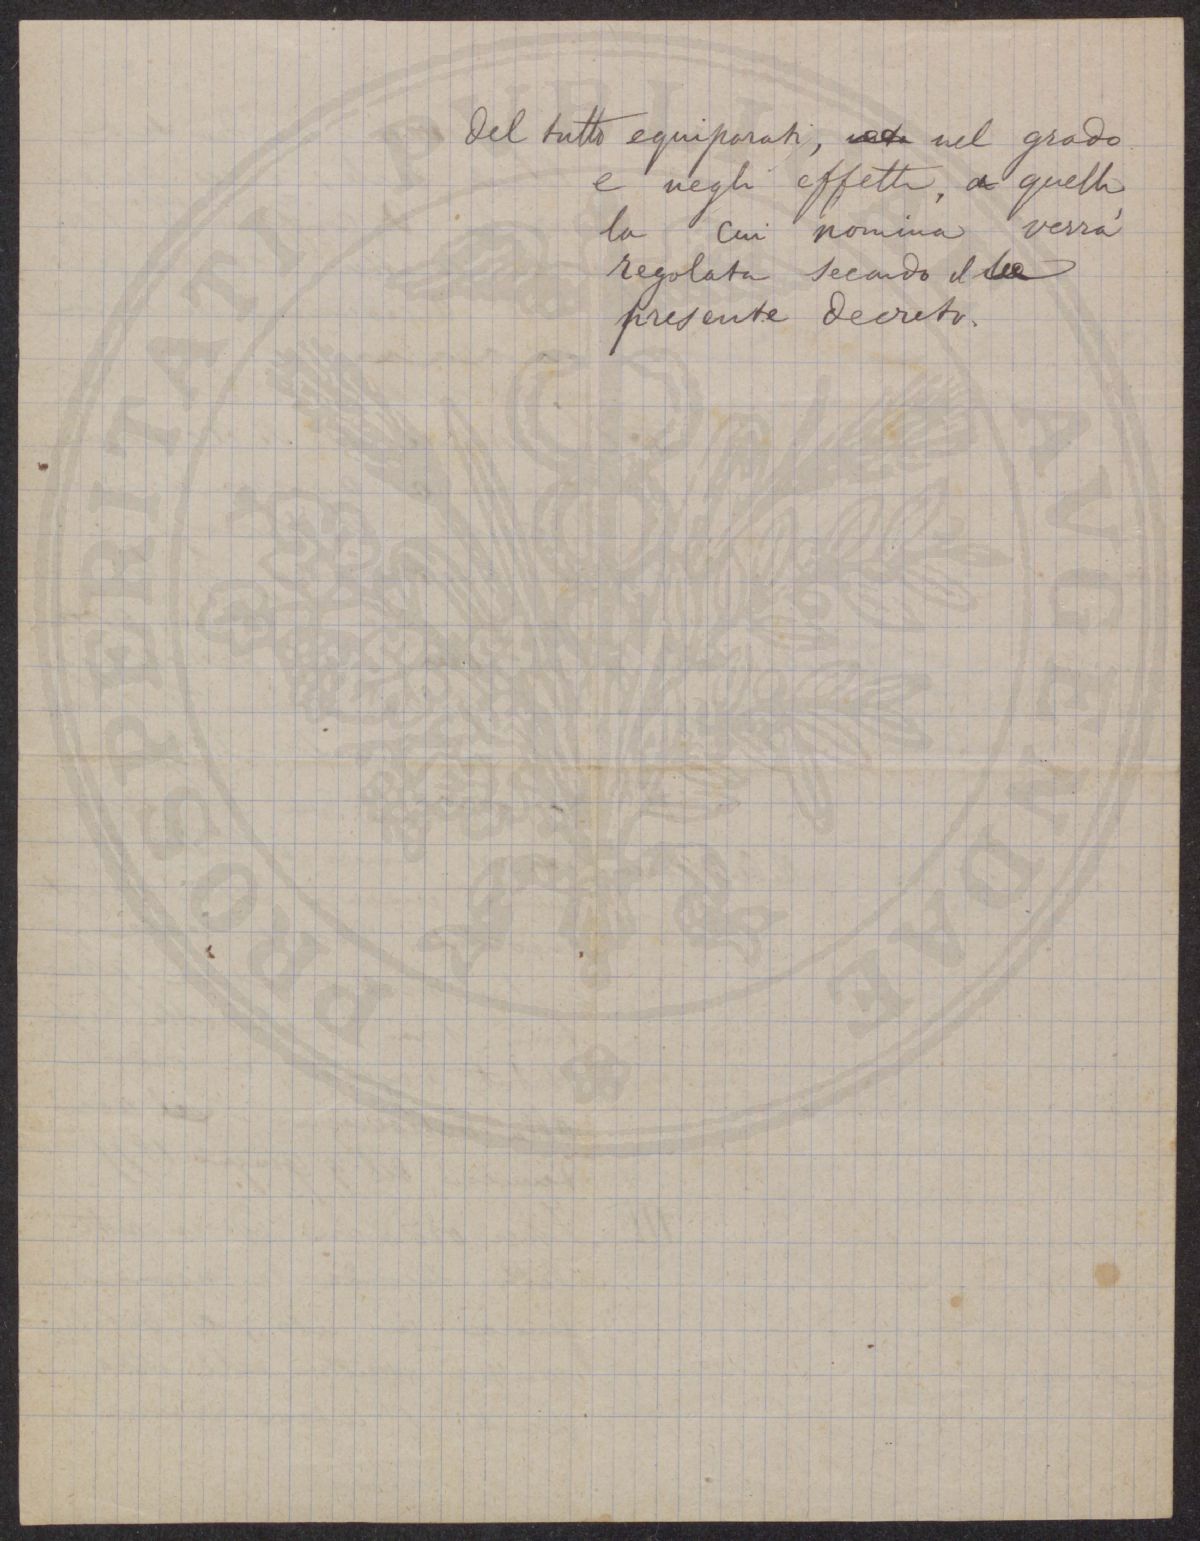 del tutto equiparati, nel grado
e negli effetti, a quelli
la cui nomina verrà
regolata secondo il
presente decreto.
PROSPERITATI PVBLICAE AVGENDAE